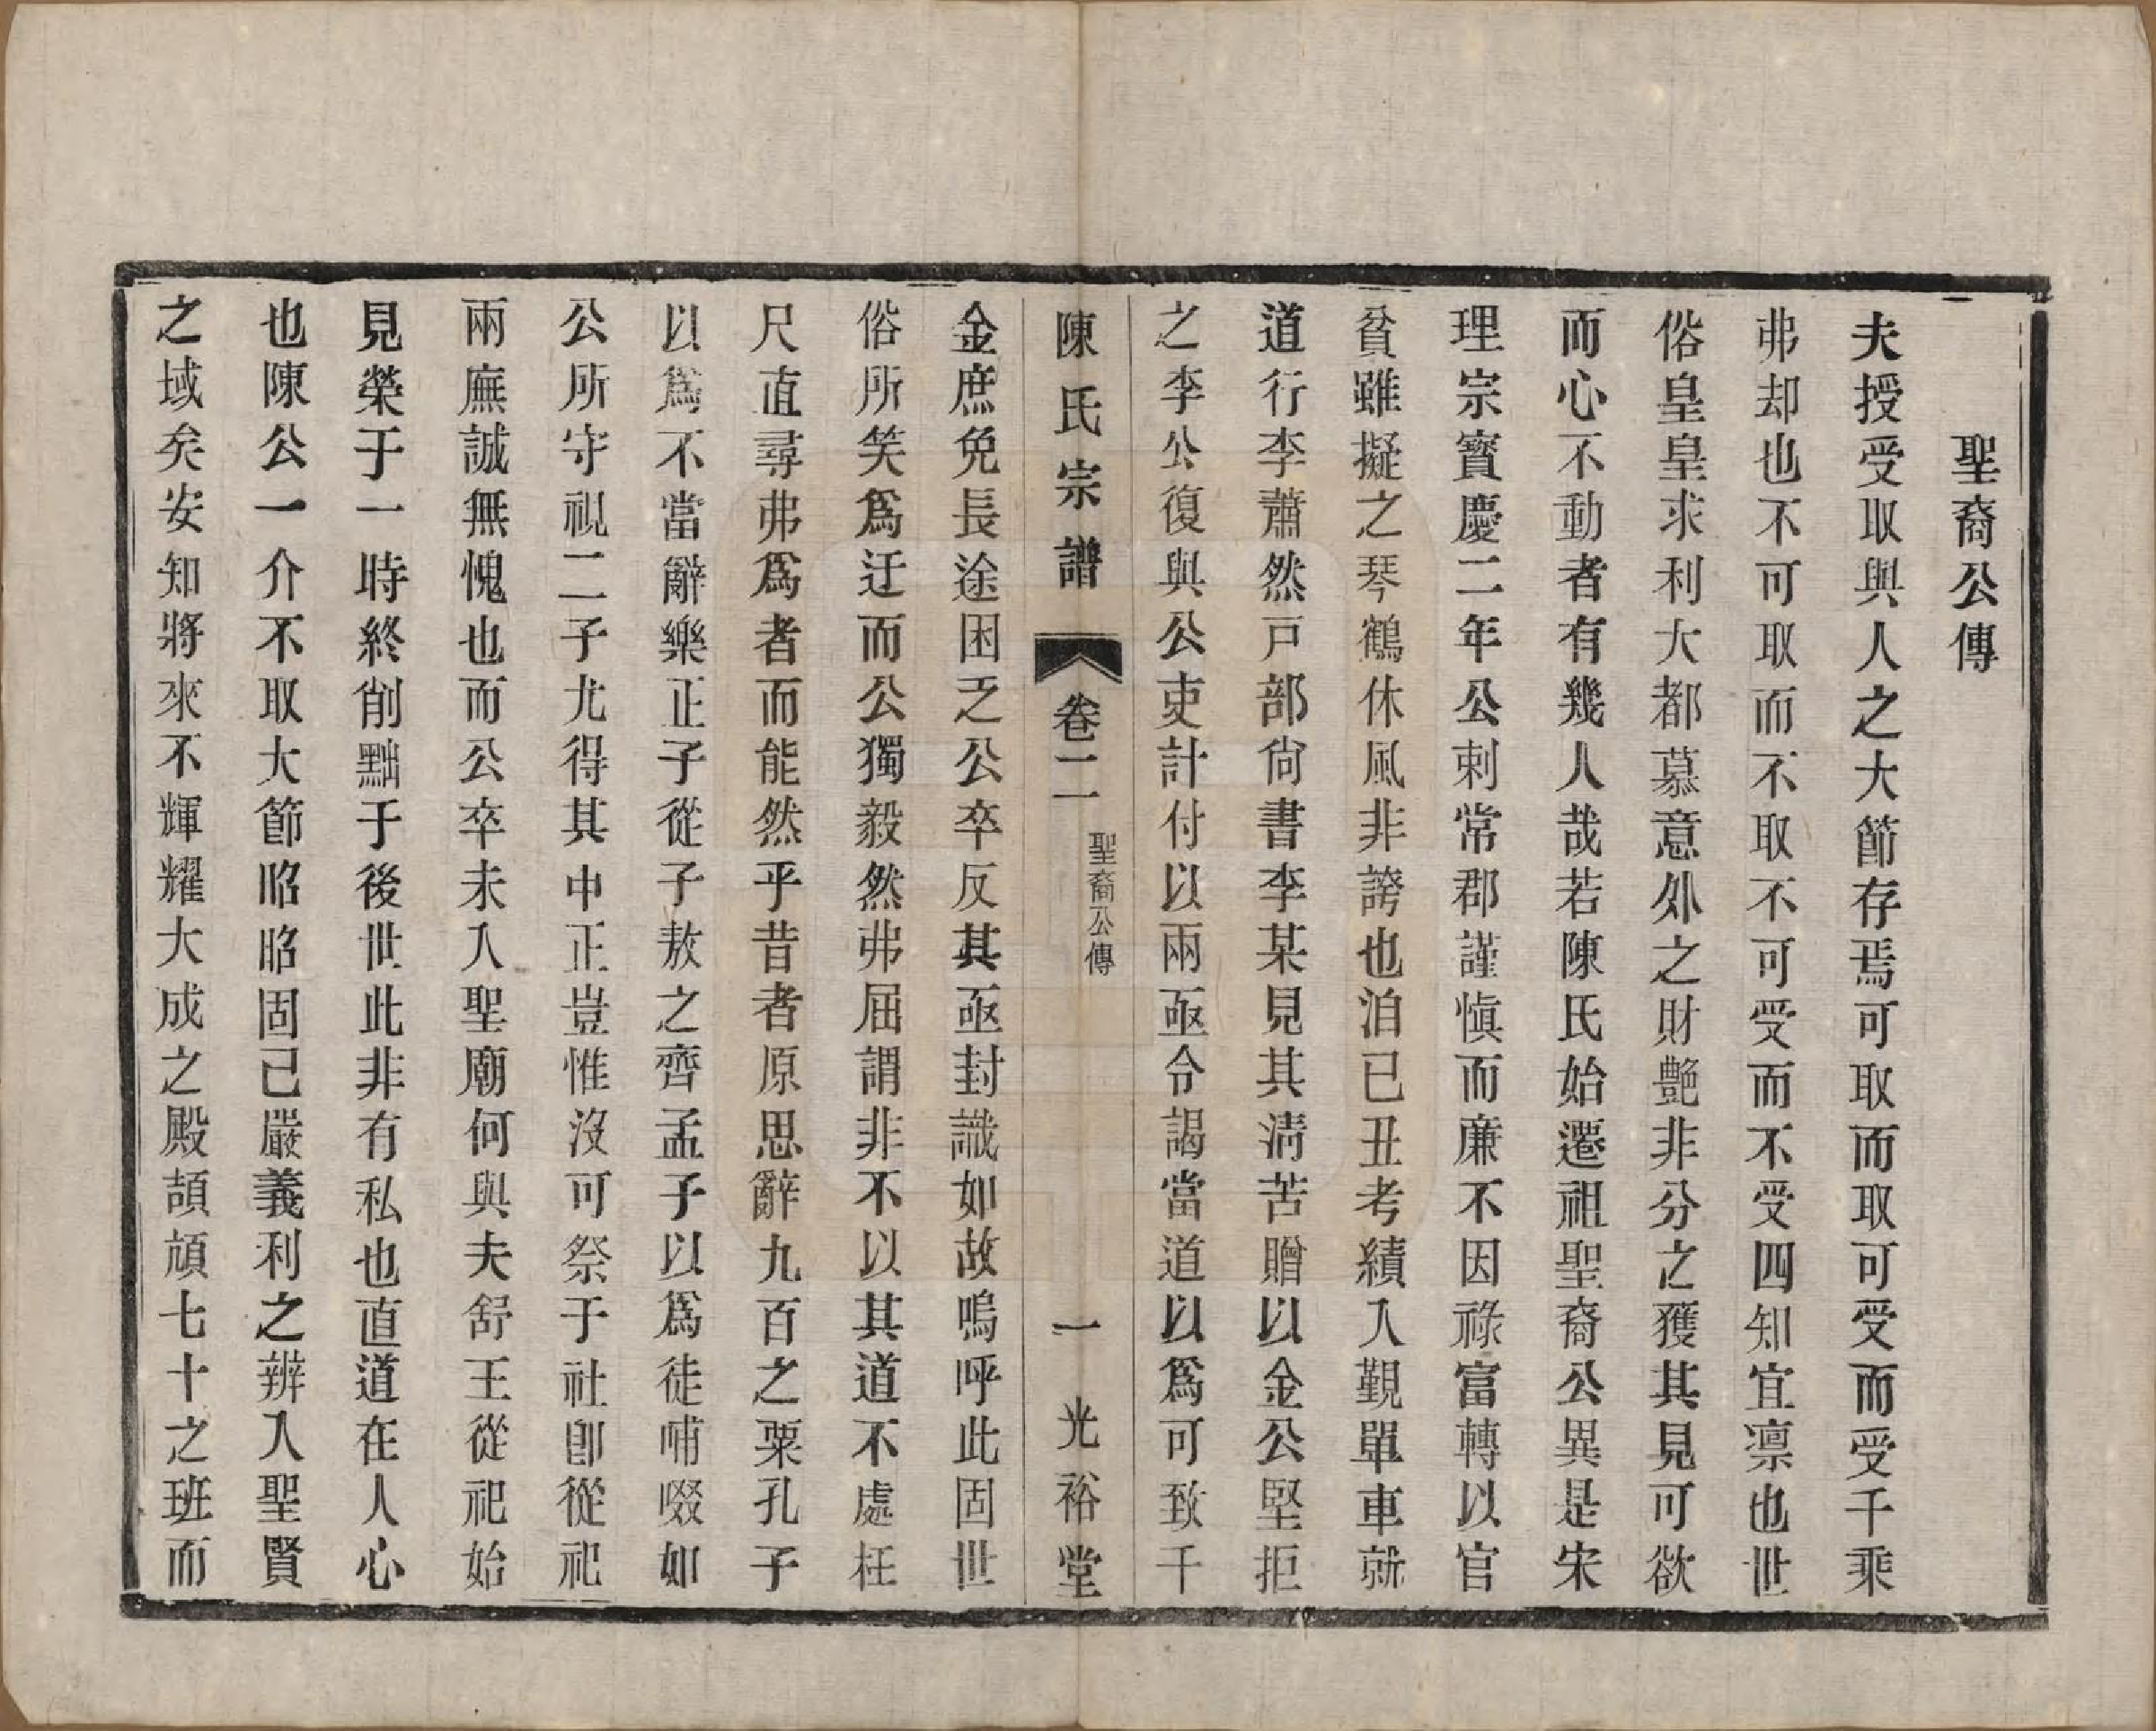 聖裔公傳
夫授受取與人之大節存焉可取而取可受而受千乘
弗却也不可取而不取不可受而不受四知宜凛也世
俗皇皇求利大都慕意外之財艶非分之獲其見可欲
而心不動者有幾人哉若陳氏始遷祖聖裔公異是宋
理宗寳慶二年公剌常郡謹愼而廉不因祿富轉以官
貧雖擬之琴鶴休風非誇也洎已丑考績入覲單車就
道行李蕭然戸部尙書李某見其淸苦贈以金公堅拒
之李公復與公吏計付以兩亟令謁當道以爲可致千
陳氏宗譜 卷二 聖裔公傳 一 光裕堂
金庶免長途困乏公卒反其亟封識如故嗚呼此固世
俗所笑爲迂而公獨毅然弗屈謂非不以其道不處枉
尺直尋弗爲者而能然乎昔者原思辭九百之粟孔子
以爲不當辭樂正子從子敖之齊孟子以爲徒哺啜如
公所守視二子尤得其中正豈惟沒可祭于社卽從祀
兩廡誠無愧也而公卒未入聖廟何與夫舒王從祀始
見榮于一時終削黜于後世此非有私也直道在人心
也陳公一介不取大節昭昭固己嚴義利之辨入聖賢
之域矣安知將來不輝耀大成之殿頡頏七十之班而